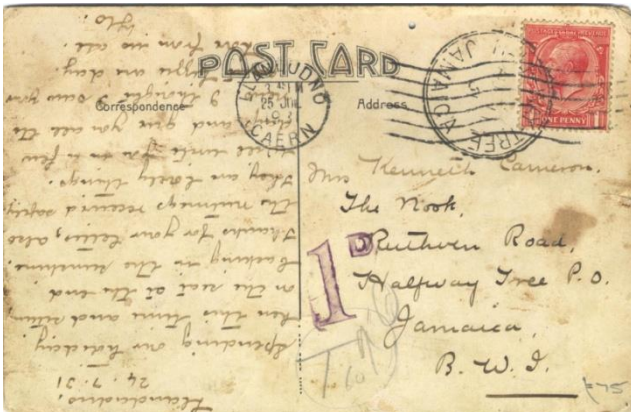 POST CARD
Correspondence
Address
LLANDUDNO
25 JUL
CAERN
TREE
JAMAICA
ONE PENNY
Mrs Kenneth Cameron.
The Nook,
Ruthven Road,
Halfway Tree P.O.
Jamaica,
B. W. I.
1D
Llandudno.
24.7.31
Spending our holiday
here this time and return
on the rest at the end
basking in the sunshine.
Thanks for your letter, also
the nutmegs received safely
They are lovely things.
Will write you in a few
days and give you all the
news. I thought I saw you
Lizzie one day.
Love from us all.
Flo.